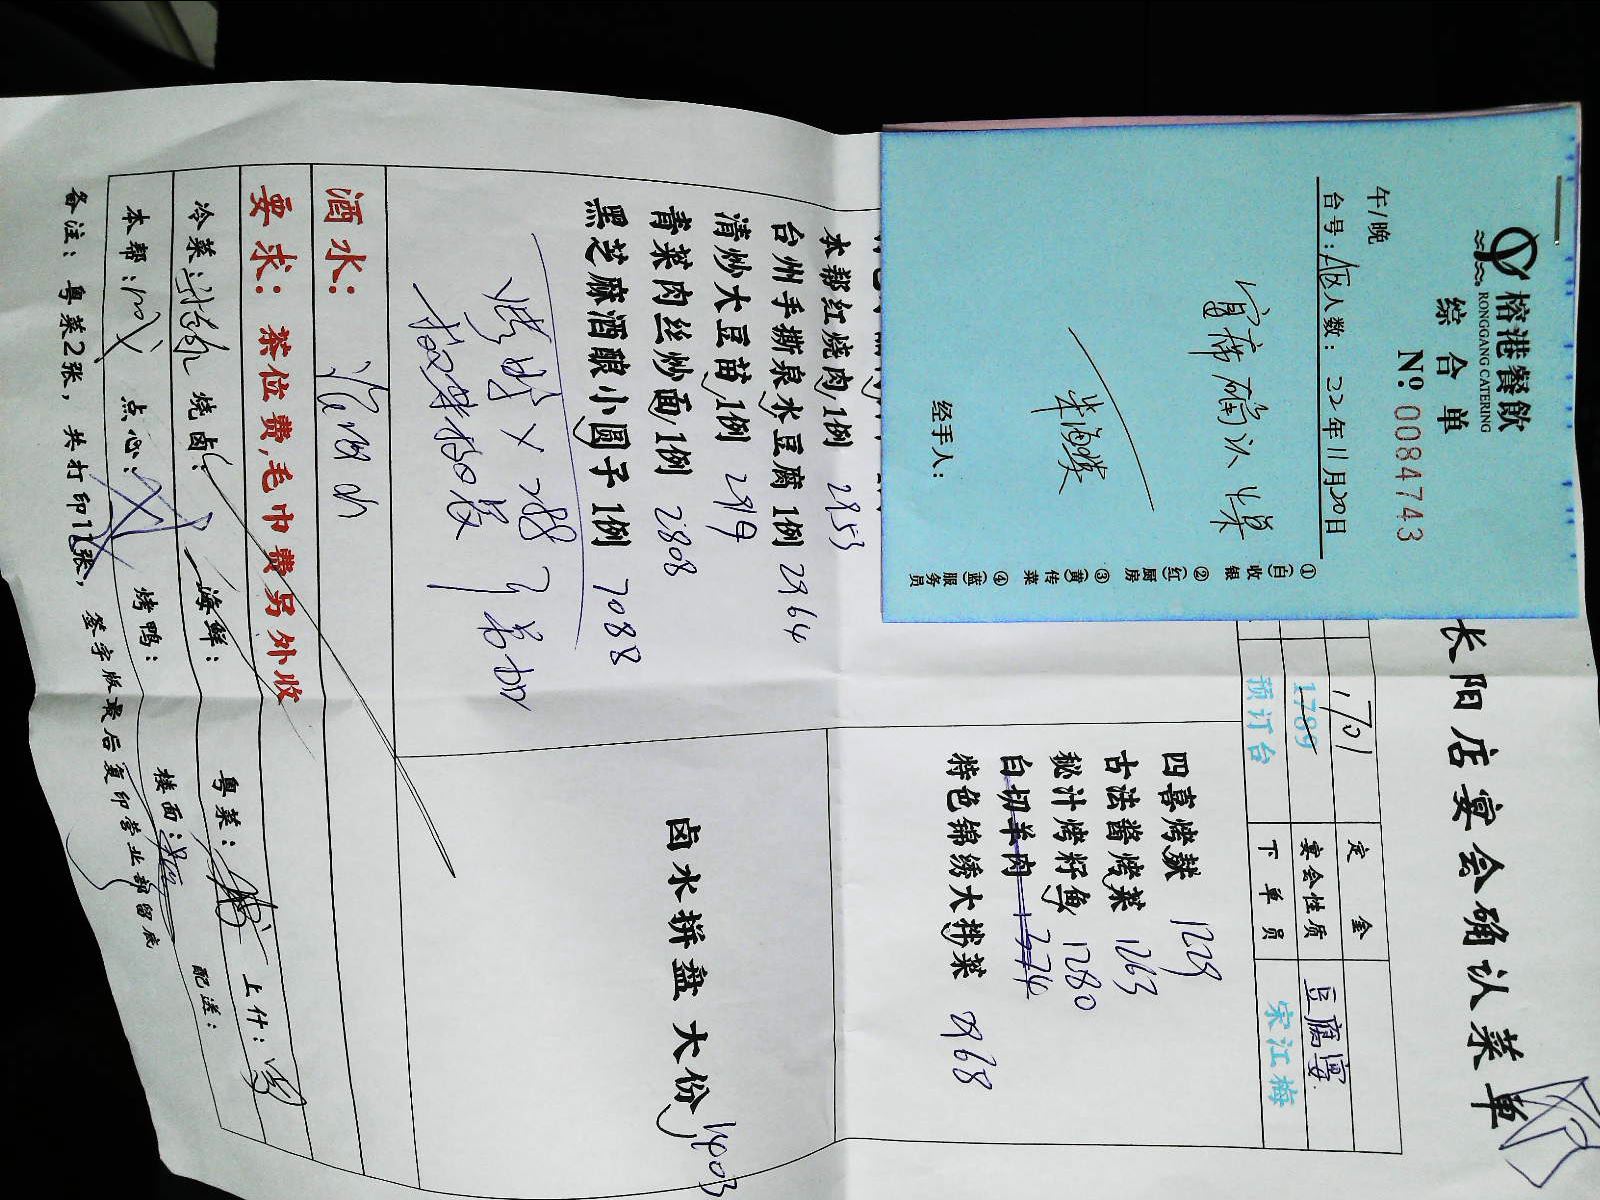 长阳店宴会确认菜单
榕港餐飲
RONGGANG CATERING
综合单
№ 0084743
台号：A区人数： 22年11月20日
午/晚
宴席确认单
经手人：
①（白）收银
②（红）厨房
③（黄）传菜
④（蓝）服务员
1701
定金
1789
宴会性质 豆腐宴
预订台
下单员 宋江梅
四喜烤麸 1229
古法酱烤菜 1263
秘汁烤籽鱼 1280
白切羊肉
特色锦绣大拌菜 2968
本帮红烧肉1例 2953
台州手撕泉水豆腐1例 2964
清炒大豆苗1例 2919
青菜肉丝炒面1例 2808
黑芝麻酒酿小圆子1例 7088
卤水拼盘 大份 1403
酒水：
要求： 茶位费，毛巾费另外收
冷菜： 烧卤： 海鲜： 粤菜： 上什：
本帮： 点心： 烤鸭： 楼面： 配送：
备注：粤菜2张，共打印12张，签字版最后复印营业部留底